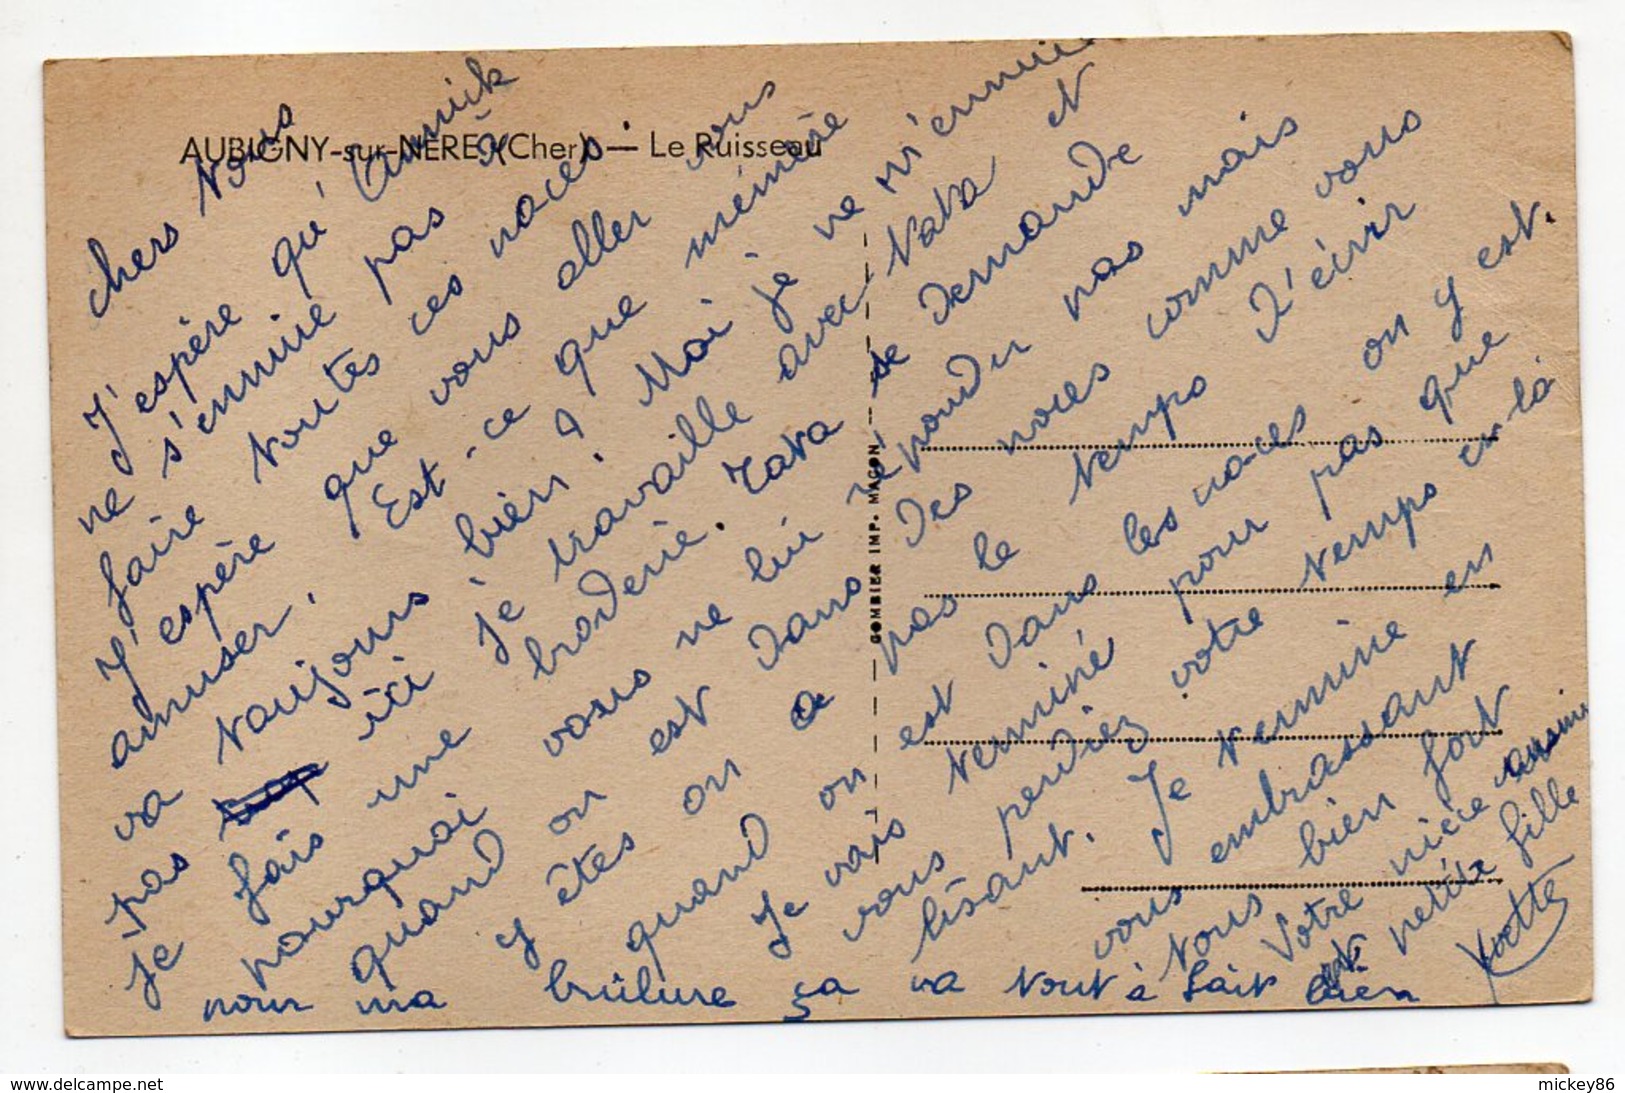 AUBIGNY-sur-NERE (Cher) — Le Ruisseau
chers vous
J'espère qu'Annick
ne s'ennuie pas à
faire toutes ces noces.
J'espère que vous aller vous
amuser. Est-ce que mémère
va toujours bien? Moi je ne m'ennuie
pas ici je travaille avec tata et
je fais une broderie. Tata se demande
pourquoi vous ne lui répondez pas mais
quand on est dans des noces comme vous
y êtes on a pas le temps d'écrir
quand on est dans les noces on y est.
Je vais terminé pour pas que
vous perdiez votre temps en la
lisant. Je termine en
vous embrassant
tous bien fort
Votre nièce cousine
et petite fille
Yvette
pour ma brûlure ça va tout à fait bien
COMBIER IMP. MACON
www.delcampe.net
mickey86